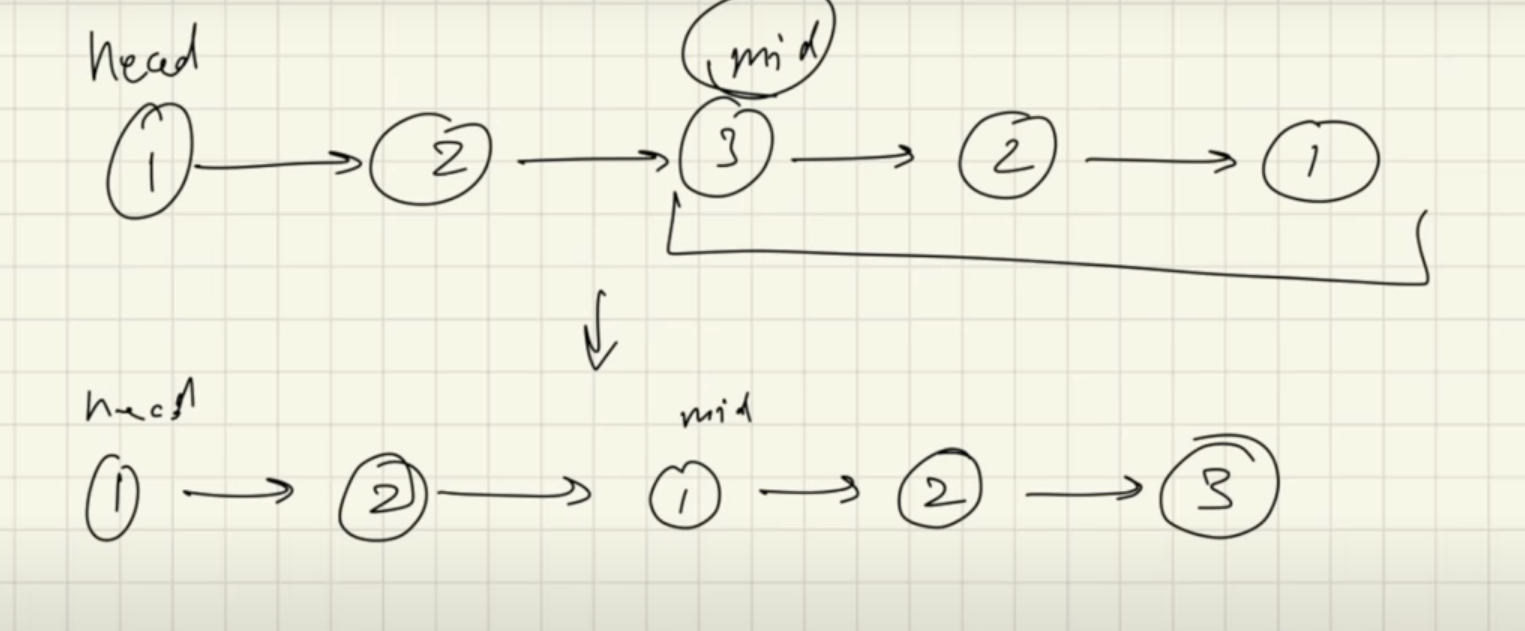 head mid
1 → 2 → 3 → 2 → 1
↓
head mid
1 → 2 → 1 → 2 → 3